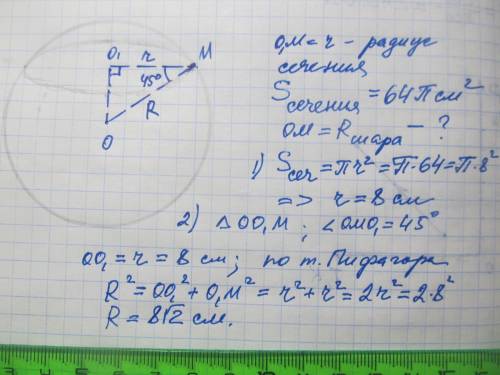 O₁ r M
45°
R
O
O₁M = r – радиус
сечения
Sсечения = 64π см²
OM = Rшара – ?
1) Sсеч = πr² = π·64 = π·8²
=> r = 8 см
2) △ OO₁M ; ∠OMO₁ = 45°
OO₁ = r = 8 см; по т. Пифагора
R² = OO₁² + O₁M² = r² + r² = 2r² = 2·8²
R = 8√2 см.